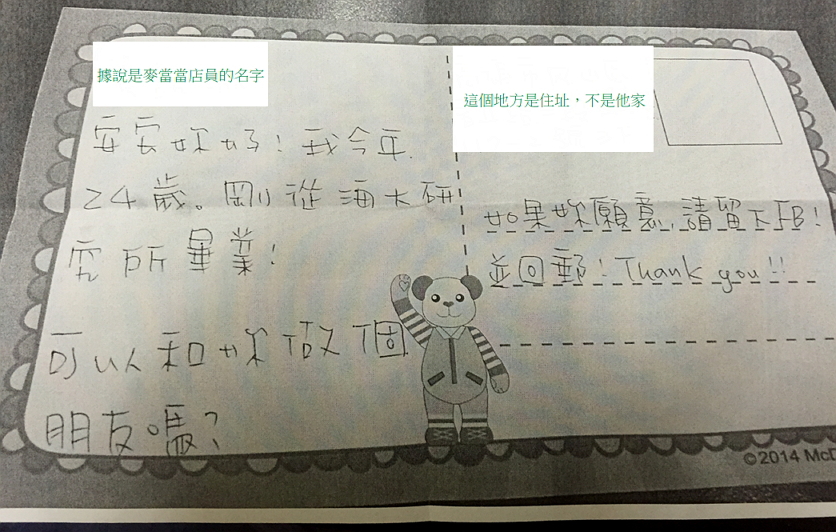 據說是麥當當店員的名字
安安妳好！我今年
24歲。剛從海大研
究所畢業！
可以和妳做個
朋友嗎？
這個地方是住址，不是他家
如果妳願意，請留下FB！
並回郵！Thank you!!
©2014 McD